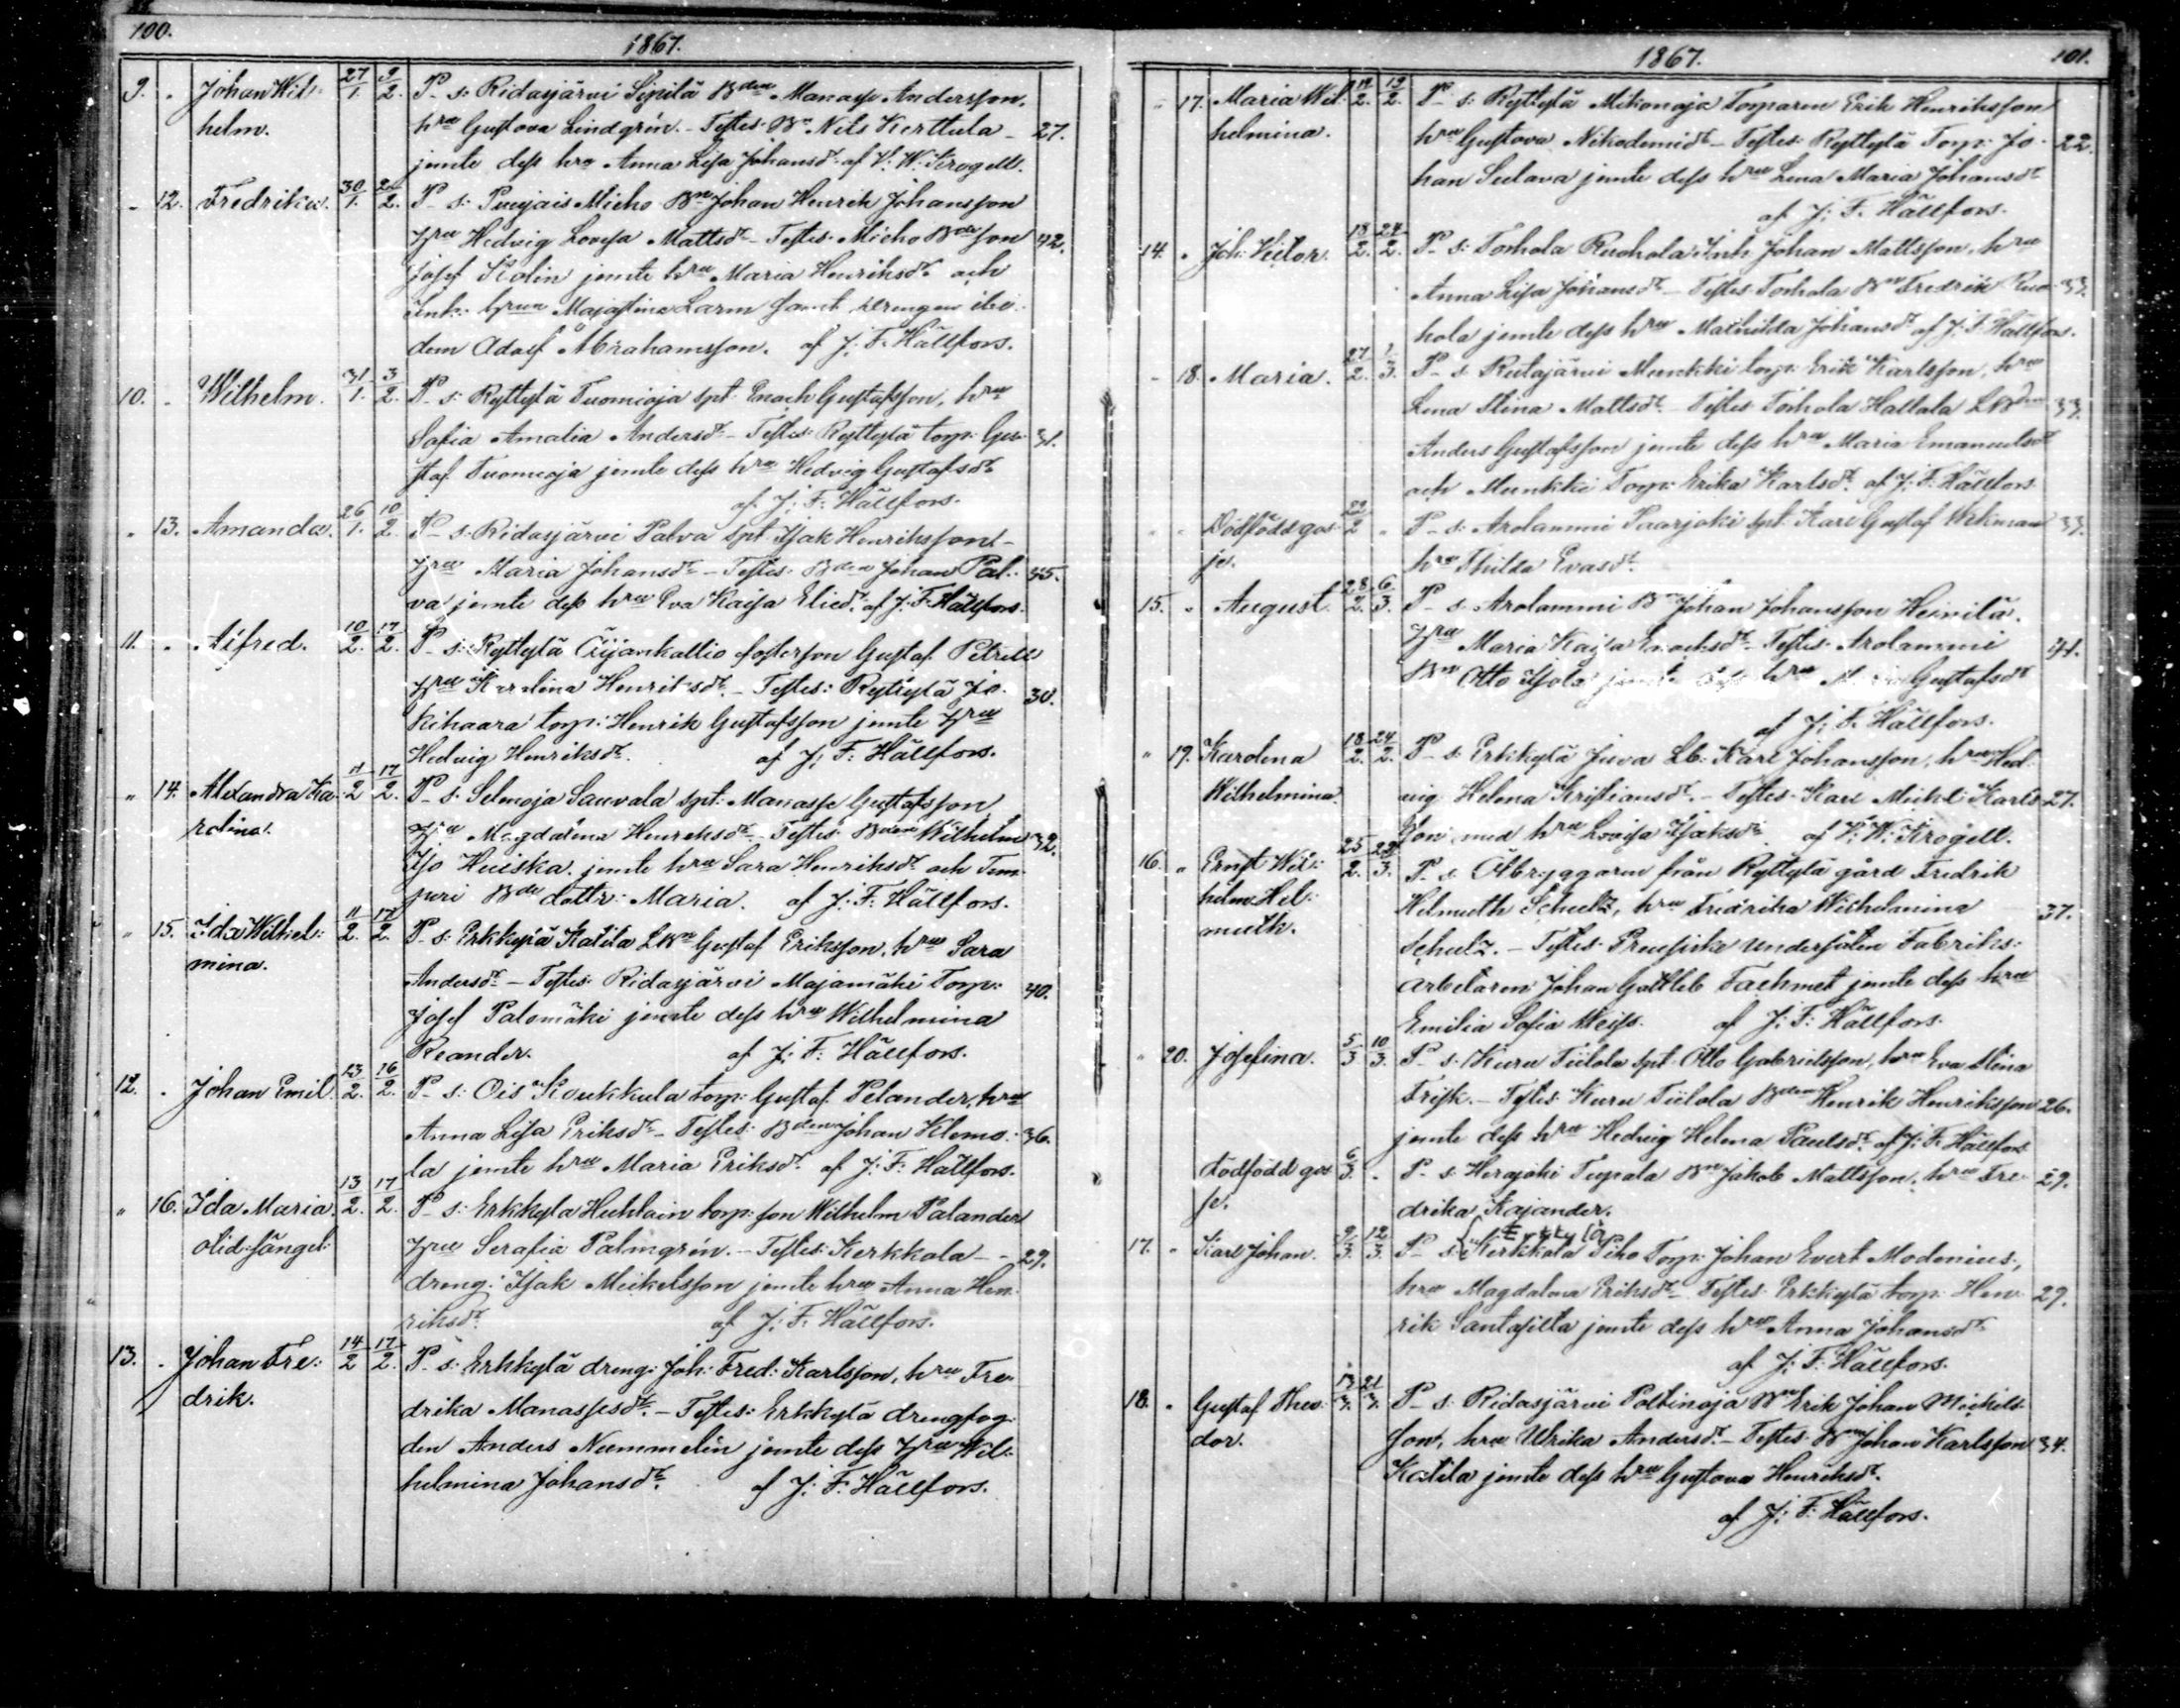 100.
1867.
9. " Johan Wil= 27/1. 9/2. P. s: Ridasjärvi Sipilä Bden Manasse Andersson,
helm. hru Gustava Lindgrén. - Testes: Bn Nils Kerttula - 27.
jemte dess hru Anna Lisa Johansdr. af V. W. Krogell.
" 12. Fredrika. 30/1. 2/2. P. s: Micko Bn Johan Henrik Johansson
hru Hedvig Lovisa Mattsdr - Testes: Micko Bdeson 42.
Josef Kolin jemte hru Maria Henriksdr och
Inh: hrun Majastina Larm samt drengen ibi=
dem Adolf Abrahamsson. af J: F: Hällfors.
10. " Wilhelm. 31/1. 3/2. P. s: Ryttylä Tuomioja spt: Enoch Gustafsson, hru
Sofia Amalia Andersdr - Testes: Ryttylä torp: Gu= 31.
staf Tuomioja jemte dess hru Hedvig Gustafsdr
af J: F: Hällfors.
" 13. Amanda. 26/1. 10/2. P. s: Ridasjärvi Palva spt Isak Henriksson
hru Maria Johansdr - Testes: Bden Johan Pal= 35.
va jemte dess hru Eva Kaisa Eliedr. af J: F: Hällfors.
11. " Alfred. 10/2. 17/2. P. s: Ryttylä Äijänkallio fosterson Gustaf Petrell
hru Karolina Henriksdr. - Testes: Ryttylä Jo= 30.
kihaara torp: Henrik Gustafsson jemte hru
Hedvig Henriksdr. af J: F: Hällfors.
" 14. Alexandra Ka= 11/2. 17/2. P. s: Selmoja Sauvala spt: Manasse Gustafsson
rolina. hru Magdalena Henriksdr - Testes: Bden Wilhelm 32.
Iso Huiska jemte hru Sara Henriksdr och Tem=
peri Bde dottr: Maria. af J: F: Hällfors.
" 15. Ida Wilhel= 11/2. 17/2. P. s: Erkkylä Katila LBn Gustaf Eriksson, hru Sara
mina. Andersdr - Testes: Ridasjärvi Majamäki Torp: 40.
Josef Palomäki jemte dess hru Wilhelmina
Reander. af J: F: Hällfors.
12. " Johan Emil. 13/2. 16/2. P. s: Ois Koukkula torp: Gustaf Pelander, hru
Anna Lisa Eriksdr - Testes: Bden Johan Klemo= 36.
la jemte hru Maria Eriksdr. af J: F: Hällfors.
" 16. Ida Maria. 13/2. 17/2. P. s: Erkkylä Huhtain torp: son Wilhelm Palander
olid: sängel: hru Serafia Palmgrén. - Testes: Kerkkola - 29.
dreng: Isak Mickelsson jemte hru Anna Hen=
riksdr. af J: F: Hällfors.
13. " Johan Fre= 14/2 17/2. P. s: Erkkylä dreng: Joh: Fred: Karlsson, hru Fre=
drik. drika Manassesdr. - Testes: Erkkylä drengfog=
den Anders Nummelin jemte dess hru Wil=
helmina Johansdr. af J: F: Hällfors.
1867.
101.
" 17. Maria Wil= 12/2. 19/2. P. s: Ryttylä Mikonoja Torparen Erik Henriksson
helmina. hru Gustava Nikodemidr - Testes: Ryttylä Torp: Jo= 22.
han Sulava jemte dess hru Lena Maria Johansdr
af J: F. Hällfors.
14. " Joh: Victor. 18/2. 24/2. P. s: Torhola Ruohola Inh Johan Mattsson, hru
Anna Lisa Johansdr - Testes: Torhola Bn Fredrik Ruo= 33.
hola jemte dess hru Mathilda Johansdr af J: F: Hällfors.
" 18. Maria. 27/2. 1/3. P. s: Rutajärvi Munkki torp: Erik Karlsson, hru
Lena Stina Mattsdr - Testes: Torhola Hattala LBden 33.
Anders Gustafsson jemte dess hru Maria Emanuelsdr
och Munkki Torp: Erika Karlsdr. af J: F: Hällfors
" " Dödfödd gos= 22/2 " P. s: Arolammi Paarjoki spt: Karl Gustaf Wekman 33.
se. hru Thilda Evasdr.
15. " August 28/2. 6/3. P. s: Arolammi Bn Johan Johansson Heinilä.
hru Maria Kajsa Enochsdr - Testes: Arolammi 41.
Bn Otto Isola jemte dess hru Gustafsdr
af J: F. Hällfors.
" 19. Karolina 18/2. 24/2. P. s: Erkkylä Juva Lb: Karl Johansson, hru Hed=
Wilhelmina vig Helena Kristiansdr. - Testes: Karl Mickel Karls= 27.
son med hru Lovisa Isaksdr af V: W: Krogell.
16. " Ernst Wil= 25/2. 22/3. P. s: Ölbryggaren från Ryttylä gård Fredrik
helm Hel= Helmuth Schultz, hru Fredrika Wilhelmina 37.
muth. Schulz. - Testes: Preussiska undersåten Fabriks=
arbetaren Johan Gottlieb Fachmet jemte dess hru
Emilia Sofia Weiss. af J: F: Hällfors.
" 20. Josefina. 5/3 10/3. P. s: Kuru Tiilola spt: Otto Gabrielsson, hru Eva Stina
Frisk. - Testes: Kuru Tiilola Bden Henrik Henriksson 26.
jemte dess hru Hedvig Helena Paulsdr. af J: F. Hällfors
Dödfödd gos= 6/3. " P. s: Herajoki Tupala Bn Jakob Mattsson, hru Fre= 29.
se. drika Kajander.
Erkkylä
17. " Karl Johan. 9/3. 12/3. P. s: Kerkkola Piho Torp: Johan Evert Modenius,
hru Magdalena Eriksdr - Testes: Erkkylä torp: Hen= 29.
rik Santasilta jemte dess hru Anna Johansdr
af J: F: Hällfors.
18. " Gustaf Theo= 13/3. 21/3. P. s: Ridasjärvi Poltinoja Bn Erik Johan Mickels=
dor. son, hru Ulrika Andersdr. - Testes: Bn Johan Karlsson 34.
Katila jemte dess hru Gustava Henriksdr.
af J: F: Hällfors.